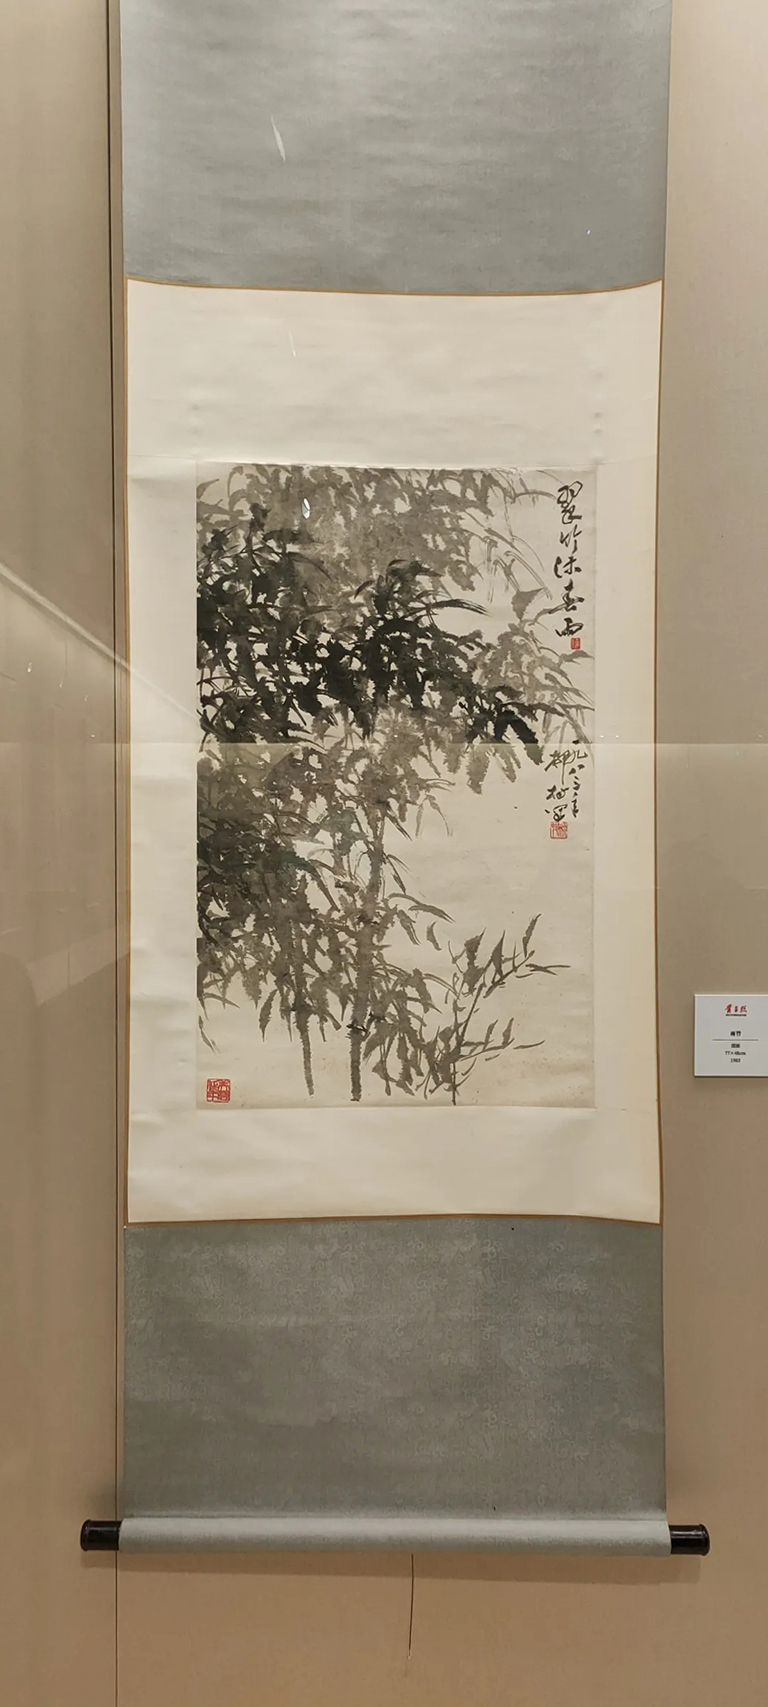 翠竹沐春雨
一九八三年
柳村写
雨竹
国画
77×46cm
1983